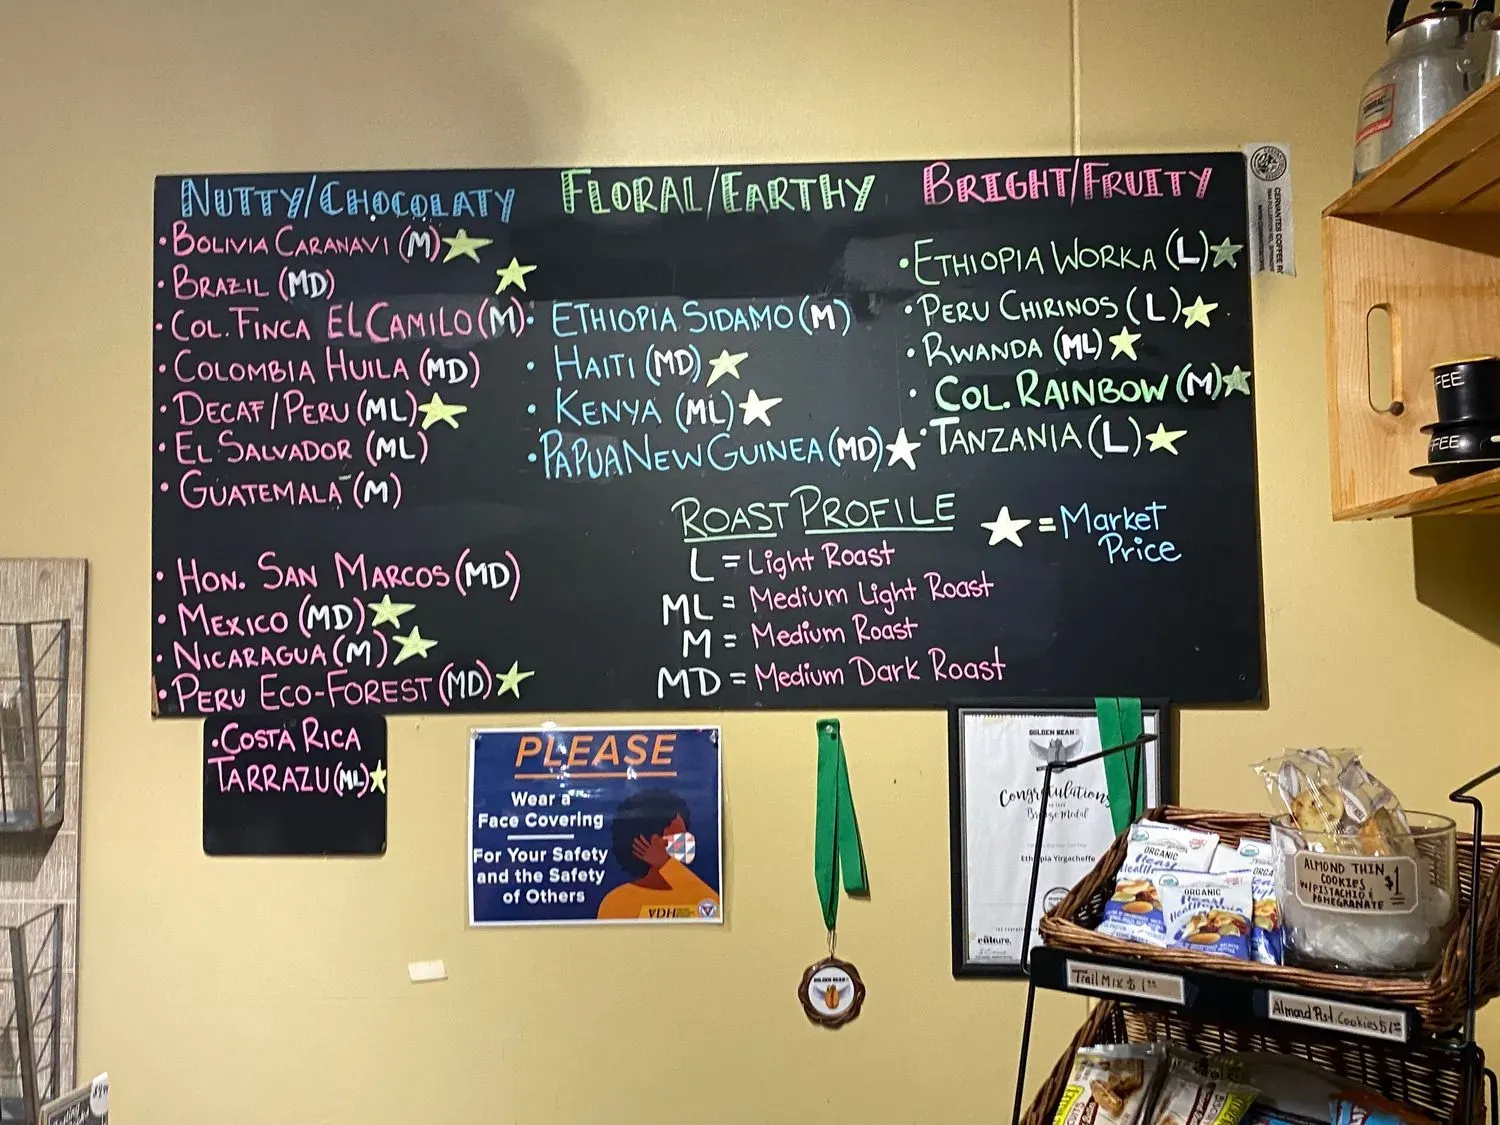 NUTTY/CHOCOLATY
• BOLIVIA CARANAVI (M)
• BRAZIL (MD)
• COL. FINCA EL CAMILO (M)
• COLOMBIA HUILA (MD)
• DECAF/PERU (ML)
• EL SALVADOR (ML)
• GUATEMALA (M)
• HON. SAN MARCOS (MD)
• MEXICO (MD)
• NICARAGUA (M)
• PERU ECO-FOREST (MD)
• COSTA RICA
TARRAZU (ML)
FLORAL/EARTHY
• ETHIOPIA SIDAMO (M)
• HAITI (MD)
• KENYA (ML)
• PAPUA NEW GUINEA (MD)
BRIGHT/FRUITY
• ETHIOPIA WORKA (L)
• PERU CHIRINOS (L)
• RWANDA (ML)
• COL. RAINBOW (M)
• TANZANIA (L)
ROAST PROFILE
L = Light Roast
ML = Medium Light Roast
M = Medium Roast
MD = Medium Dark Roast
= Market
Price
CERVANTES COFFEE
PLEASE
Wear a
Face Covering
For Your Safety
and the Safety
of Others
VDH
GOLDEN BEAN
GOLDEN BEAN
Congratulations
Bronze Medal
Ethiopia Yirgacheffe
ORGANIC
Heart
Health
ORGANIC
Heart
ALMOND THIN
COOKIES
W/PISTACHIO &
POMEGRANATE
$1
Trail Mix $1
Almond Pist. Cookies $1
FFEE
FFEE